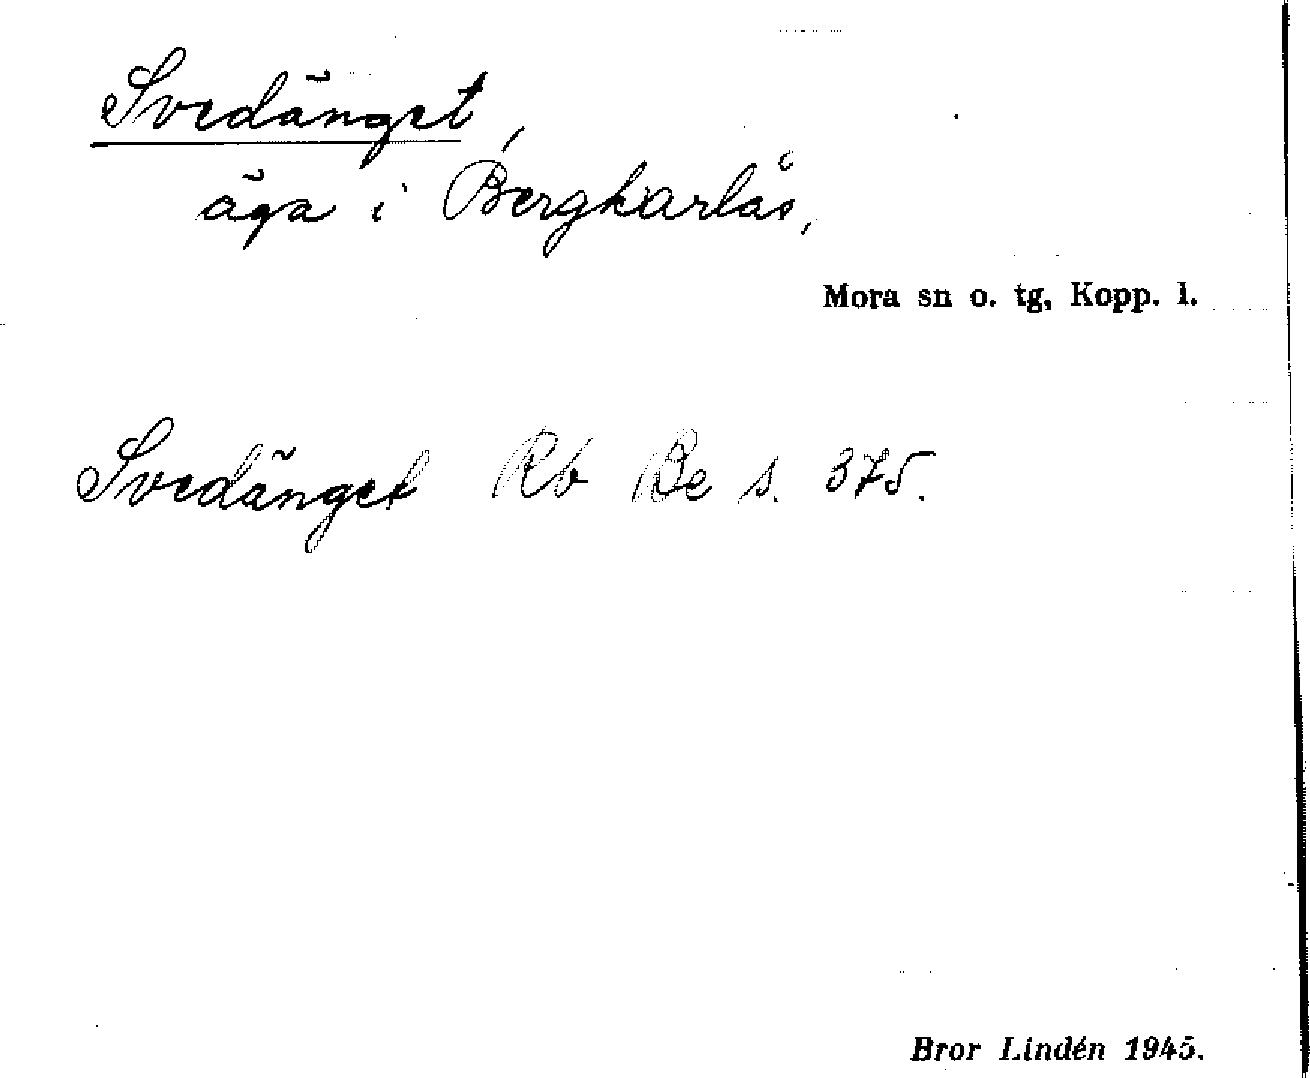 Svedänget,
äga i Bergkarlås,
Mora sn o. tg, Kopp. l.
Svedänget Rb Be s. 375.
Bror Lindén 1945.